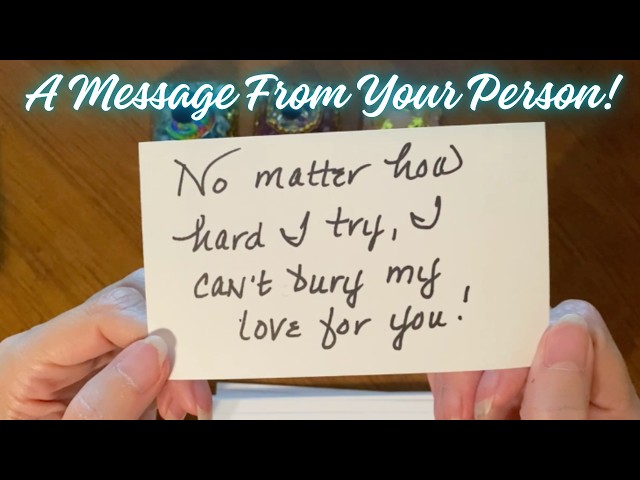 A Message From Your Person!
No matter how
hard I try, I
can't bury my
love for you!